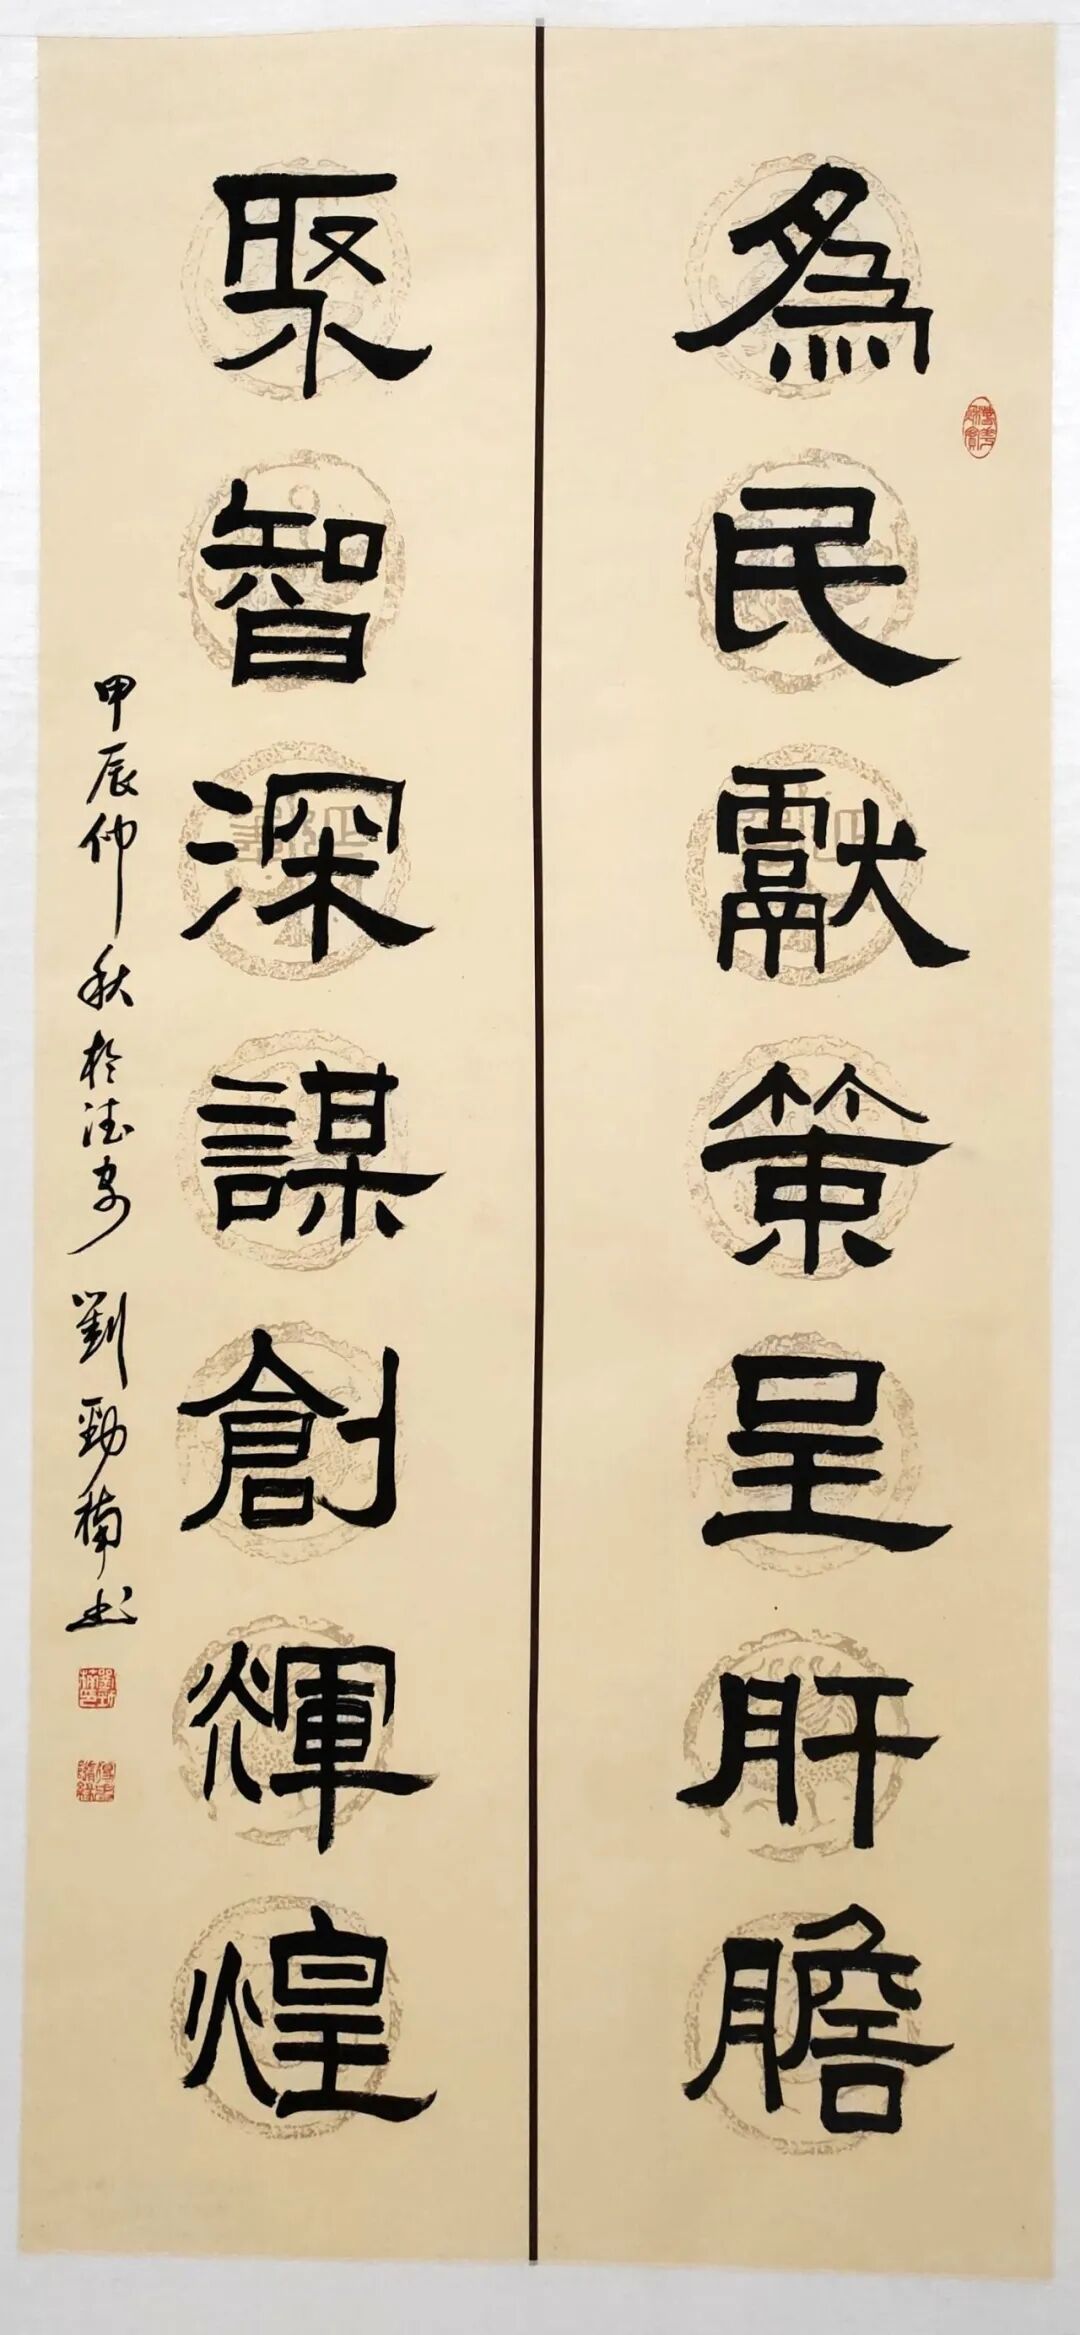 為民獻策呈肝膽
聚智深謀創輝煌
甲辰仲秋於德安劉勁楠书